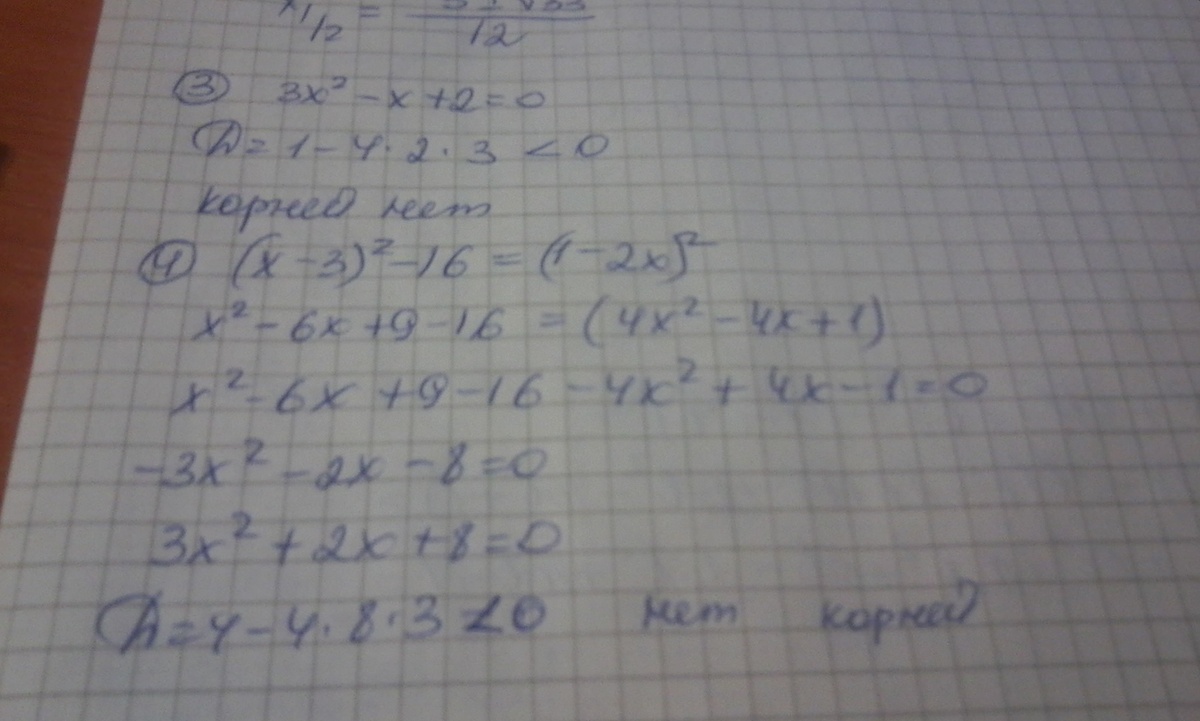 x1/2 = 12
③ 3x² - x + 2 = 0
D = 1 - 4 · 2 · 3 < 0
корней нет
④ (x - 3)² - 16 = (1 - 2x)²
x² - 6x + 9 - 16 = (4x² - 4x + 1)
x² - 6x + 9 - 16 - 4x² + 4x - 1 = 0
-3x² - 2x - 8 = 0
3x² + 2x + 8 = 0
D = 4 - 4 · 8 · 3 < 0 нет корней